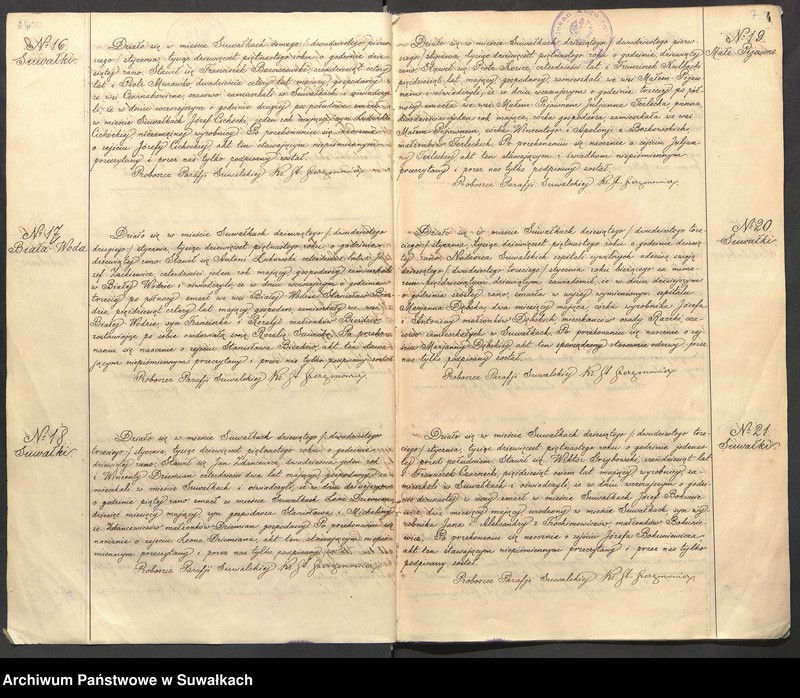 66
№ 16
Suwałki.
Działo się w mieście Suwałkach ósmego / dwudziestego pierw-
szego / stycznia, tysiąc dziewięćset piętnastego roku o godzinie dzie-
siątej rano. Stawił się Franciszek sześćdziesiąt
lat i Piotr Murawko dwadzieścia cztery lat mający gospodarz
ze wsi zamieszkali w Suwałkach i oświadczy-
li, że w dniu wczorajszym o godzinie drugiej po południu umarł
w mieście Suwałkach Józef Cichocki, jeden rok mający,
Cichockiej niezamężnej wyrobnicy. Po przekonaniu się naocznie
o zejściu Józefa Cichockiego, akt ten stawającym niepiśmiennym
przeczytany i przez nas tylko podpisany został.
Proboszcz Parafji Suwalskiej Ks. St.
№ 17
Biała-Woda
Działo się w mieście Suwałkach dziewiątego / dwudziestego
drugiego / stycznia, tysiąc dziewięćset piętnastego roku, o godzinie
dziewiątej rano. Stawił się Antoni Łukowski czterdzieści lat i Jó-
zef Zackiewicz, czterdzieści jeden rok mający gospodarze zamieszkali
w Białej Wodzie i oświadczyli, że w dniu wczorajszym o godzinie
trzeciej po północy zmarł we wsi Białej Wodzie Stanisław
pięćdziesiąt cztery lat mający gospodarz, zamieszkały we wsi
Białej Wodzie syn Franciszka i Rozalji małżonków
zostawiając po sobie owdowiałą żonę Rozalję Po przeko-
naniu się naocznie o zejściu Stanisława akt ten stawa-
jącym niepiśmiennym przeczytany i przez nas tylko podpisany został
Proboszcz Parafji Suwalskiej Ks. St.
№ 18
Suwałki.
Działo się w mieście Suwałkach dziesiątego / dwudziestego
trzeciego / stycznia, tysiąc dziewięćset piętnastego roku o godzinie
dziewiątej rano. Stawił się Jan Zdancewicz, dwadzieścia jeden lat
i Wincenty Dziemian czterdzieści dwa lat mający gospodarze za-
mieszkali w mieście Suwałkach i oświadczyli, że w dniu dzisiejszym
o godzinie piątej rano zmarł w mieście Suwałkach Leon Dziemian
dziesięć miesięcy mający, syn gospodarza Stanisława i Michaliny
ze Zdancewiczów małżonków Dziemian gospodarzy. Po przekonaniu się
naocznie o zejściu Leona Dziemiana, akt ten stawającym niepiś-
miennym przeczytany i przez nas tylko podpisany został.
Proboszcz Parafji Suwalskiej Ks. St.
7
№ 19.
Małe-Pijawne
Działo się w mieście Suwałkach dziewiątego / dwudziestego pierw-
szego / stycznia, tysiąc dziewięćset piętnastego roku o godzinie dziewiątej
rano. Stawił się Piotr czterdzieści lat i Franciszek
pięćdziesiąt lat mający gospodarze zamieszkali we wsi Małem Pijaw-
nem i oświadczyli, że w dniu wczorajszym o godzinie trzeciej po pół-
nocy zmarła we wsi Małem Pijawnem Julijanna Terlecka panna,
dwadzieścia jeden rok mająca, córka gospodarza zamieszkała we wsi
Małem Pijawnem, córka Wincentego i Apolonji z Borkowskich,
małżonków Terleckich. Po przekonaniu się naocznie o zejściu Juljan-
ny Terleckiej akt ten stawającym i świadkom niepiśmiennym
przeczytany i przez nas tylko podpisany został.
Proboszcz Parafji Suwalskiej Ks. St.
№ 20
Suwałki.
Działo się w mieście Suwałkach dziesiątego / dwudziestego trze-
ciego / stycznia, tysiąc dziewięćset piętnastego roku o godzinie dziewią-
tej rano. Nadzorca Suwalskich szpitali cywilnych odezwą swoją
dziesiątego / dwudziestego trzeciego / stycznia roku bieżącego za nume-
rem pięćdziesiątym dziewiątym zawiadomił, że w dniu dzisiejszym
o godzinie szóstej rano, zmarła w wyżej wymienionym szpitalu
Marjanna Dębska dwa miesiące mająca, córka wyrobnika Józefa
i Antoniny małżonków Dębskich mieszkańców osady Raczki, cza-
sowo zamieszkałych w Suwałkach. Po przekonaniu się naocznie o zej-
ściu Marjanny Dębskiej akt ten sporządzony stosownie odezwy, przez
nas tylko podpisany został.
Proboszcz Parafji Suwalskiej Ks. St.
№ 21
Suwałki.
Działo się w mieście Suwałkach dziesiątego / dwudziestego trze-
ciego / stycznia, tysiąc dziewięćset piętnastego roku o godzinie jedenas-
tej przed południem. Stawił się Wiktor sześćdziesiąt lat
i Franciszek Czarnecki, pięćdziesiąt osiem lat mający wyrobnicy, za-
mieszkali w Suwałkach i oświadczyli, że w dniu wczorajszym o godzi-
nie dwunastej w nocy zmarł w mieście Suwałkach Józef Bohunie-
wicz, dwa miesiące mający urodzony w mieście Suwałkach syn wy-
robnika Jana i Aleksandry z małżonków Bohunie-
wicz. Po przekonaniu się naocznie o zejściu Józefa Bohuniewicza,
akt ten stawającym niepiśmiennym przeczytany i przez nas tylko
podpisany został.
Proboszcz Parafji Suwalskiej Ks. St.
Archiwum Państwowe w Suwałkach